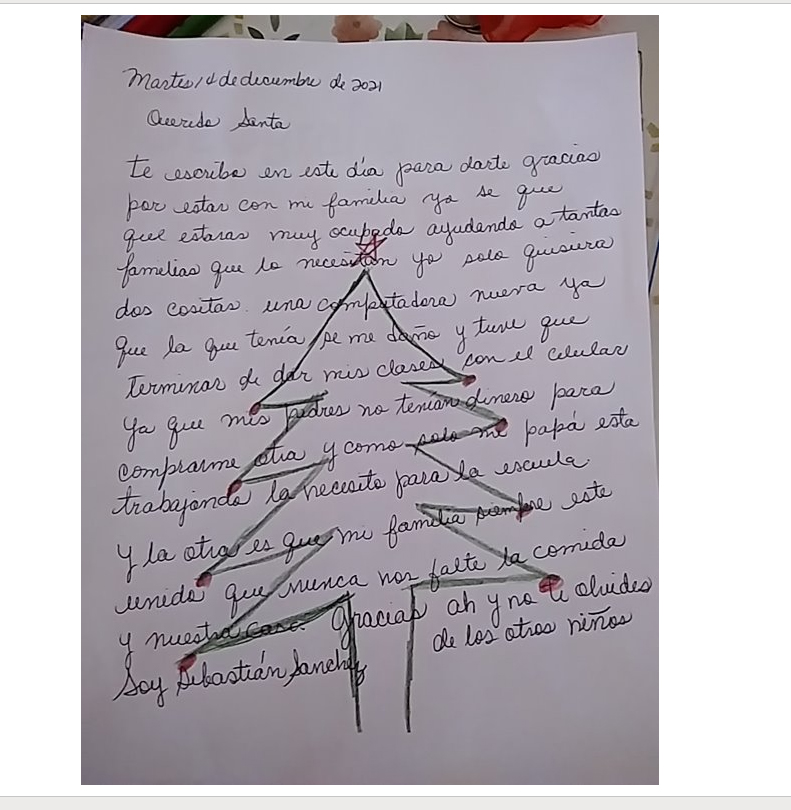 Martes, 14 de diciembre de 2021
Querido Santa
te escribo en este día para darte gracias
por estar con mi familia yo se que
que estaras muy ocupado ayudando a tantas
familias que lo necesitan yo solo quisiera
dos cositas. una computadora nueva ya
que la que tenía se me daño y tuve que
terminar de dar mis clases con el celular
ya que mis padres no tenían dinero para
comprarme otra y como solo mi papá esta
trabajando la necesito para la escuela.
Y la otra es que mi familia siempre este
unida que nunca nos falte la comida
y nuestra casa. Gracias ah y no te olvides
de los otros niños
Soy Sebastián Sanchez